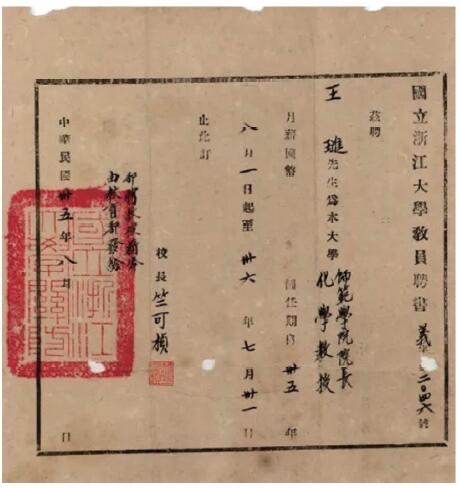 國立浙江大學教員聘書 義字 二〇四六號
茲聘
王 璡先生為本大學 師範學院院長
化學教授
月薪國幣 圓任期自卅五年
八月一日起至卅六年七月卅一日
止此訂
校長竺可楨
部聘教授薪俸
由教育部發給
中華民國卅五年八月 日
國立浙江大學關防